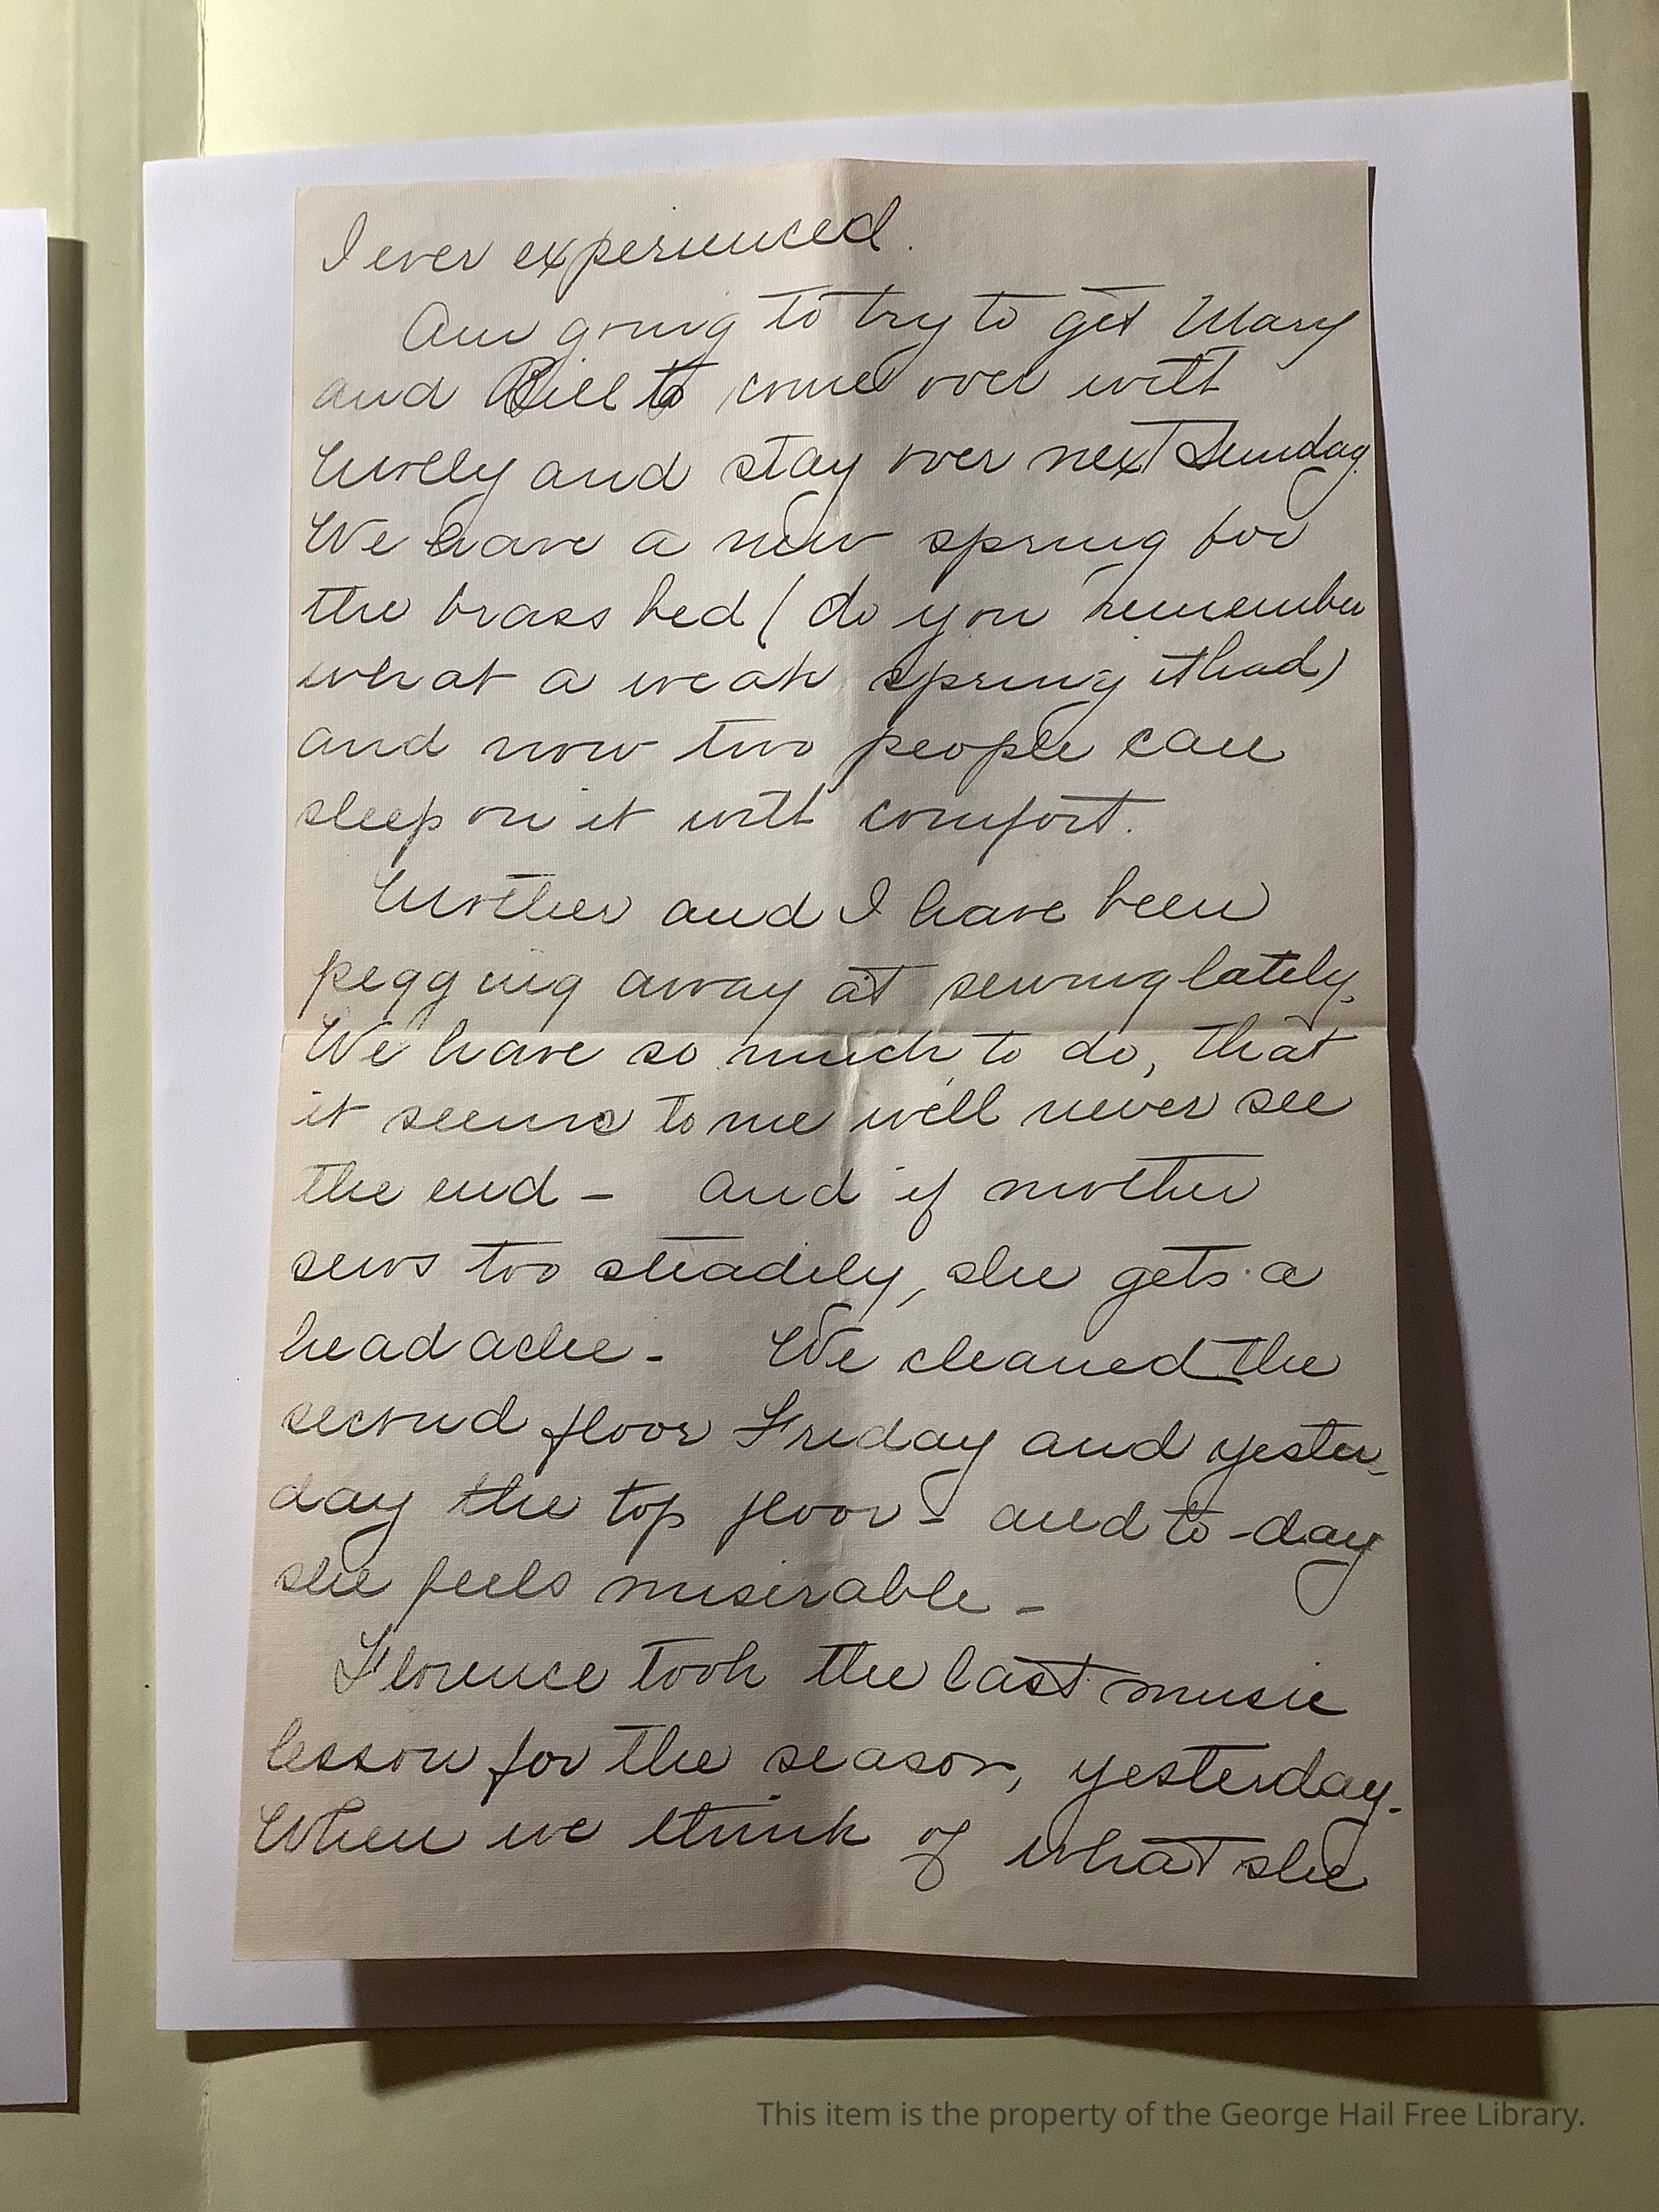 I ever experienced.
Am going to try to get Mary
and Bill to come over with
Molly and stay over next Sunday.
We have a new spring for
the brass bed (do you remember
what a weak spring it had)
and now two people can
sleep on it with comfort.
Mother and I have been
pegging away at sewing lately.
We have so much to do, that
it seems to me we'll never see
the end - and if mother
sews too steadily, she gets a
headache - We cleaned the
second floor Friday and yester-
day the top floor - and to-day
she feels miserable -
Florence took the last music
lesson for the season, yesterday.
When we think of what she
This item is the property of the George Hail Free Library.